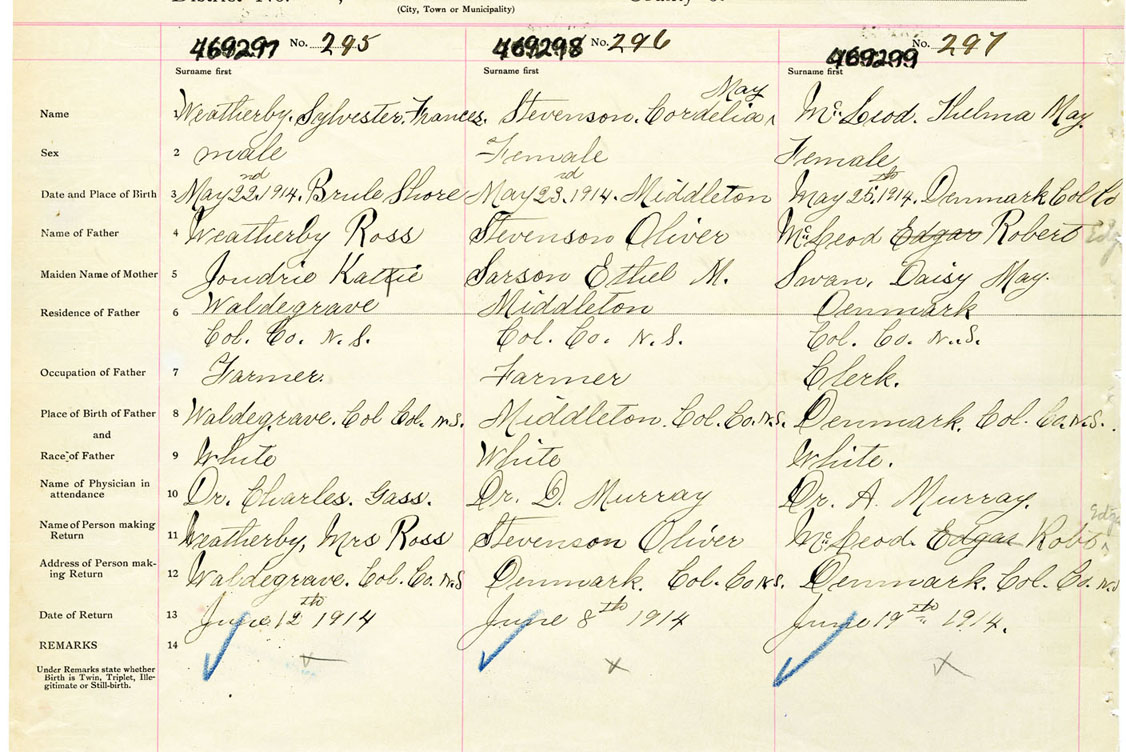 (City, Town or Municipality)
469297 No. 295 469298 No. 296 469299 No. 297
Surname first Surname first Surname first
May
Name 1 Weatherby. Sylvester. Frances. Stevenson. Cordelia McLeod. Thelma May.
Sex 2 male Female Female
Date and Place of Birth 3 May 22nd, 1914. Brule Shore May 23rd, 1914. Middleton May 25th, 1914. Denmark Col Co
Name of Father 4 Weatherby Ross Stevenson Oliver McLeod Edgar Robert Edg
Maiden Name of Mother 5 Jondrie Kattie Sarson Ethel M. Swan, Daisy May.
Residence of Father 6 Waldegrave Middleton Denmark
Col. Co. N.S. Col. Co. N.S. Col. Co. N.S.
Occupation of Father 7 Farmer. Farmer Clerk.
Place of Birth of Father 8 Waldegrave. Col Col. N.S. Middleton. Col. Co. N.S. Denmark. Col. Co. N.S.
and
Race of Father 9 White White White.
Name of Physician in
attendance 10 Dr. Charles. Gass. Dr. D. Murray Dr. A. Murray.
Name of Person making
Return 11 Weatherby, Mrs Ross Stevenson Oliver McLeod. Edgar Robt
Address of Person mak-
ing Return 12 Waldegrave. Col. Co. N.S Denmark. Col. Co N.S. Denmark. Col. Co. N.S
Date of Return 13 June 12th 1914 June 8th 1914 June 19th 1914.
REMARKS 14
Under Remarks state whether
Birth is Twin, Triplet, Ille-
gitimate or Still-birth.